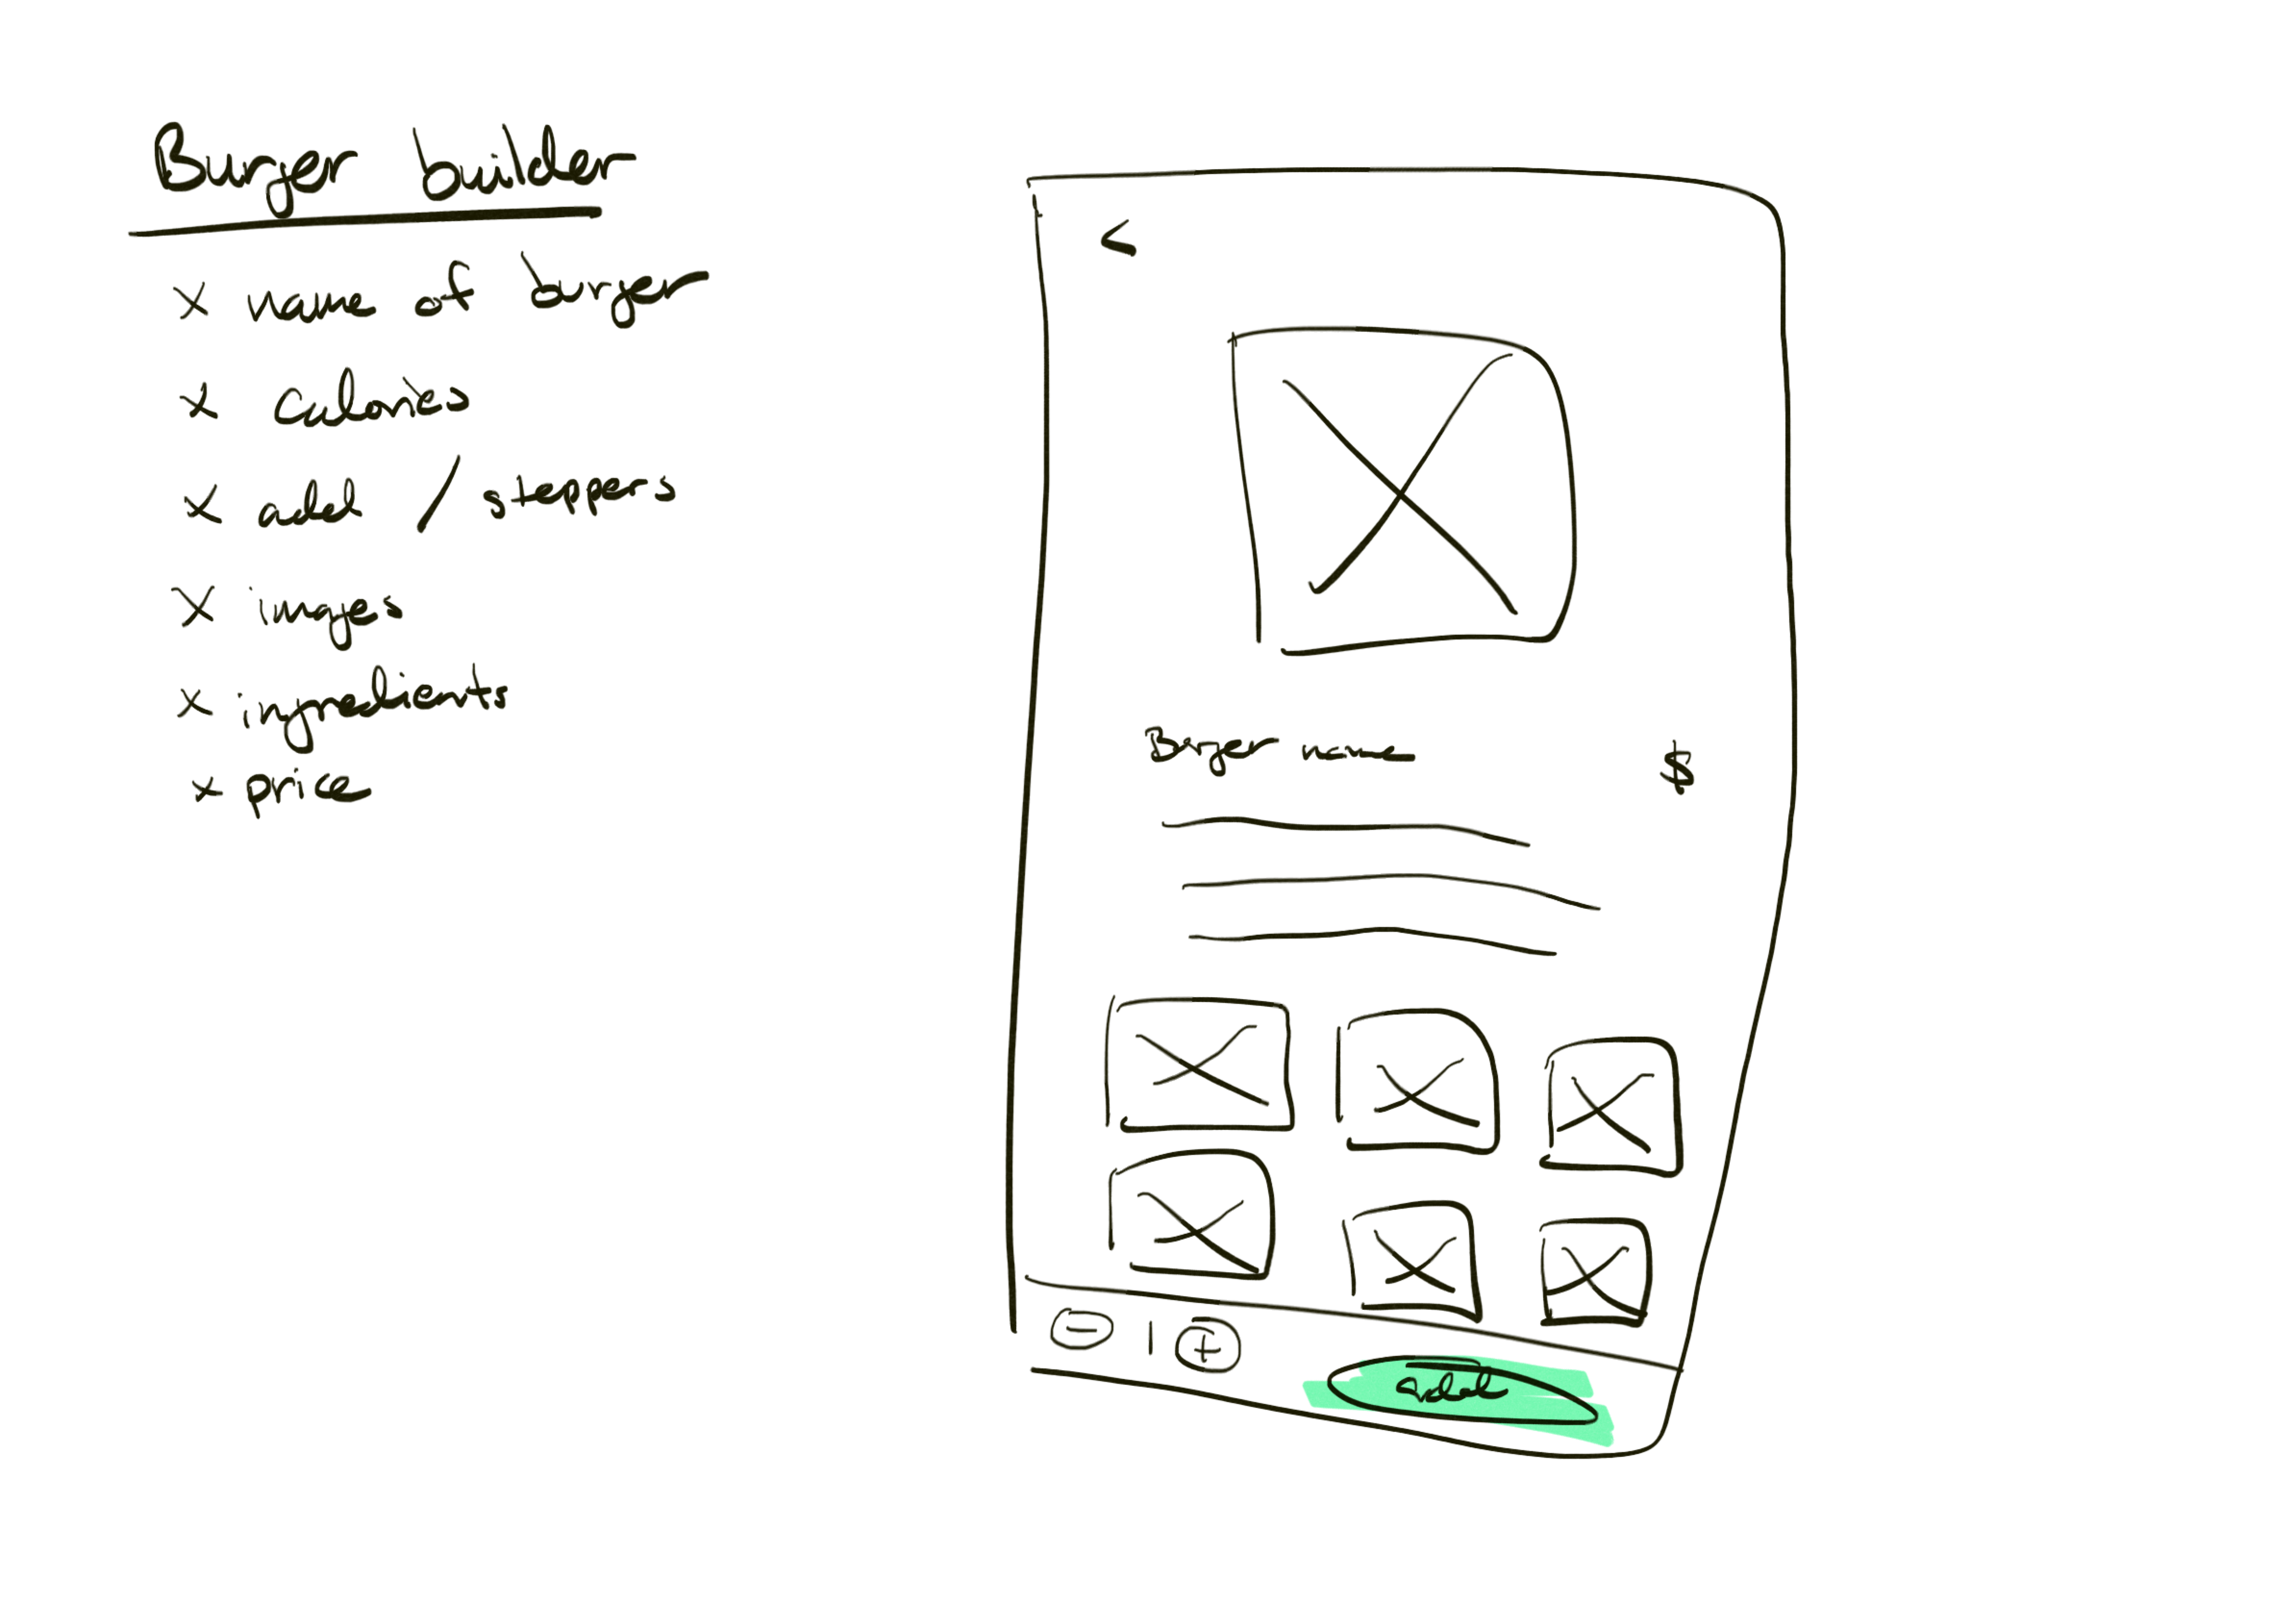 Burger builder
x name of burger
x Calories
x add / steppers
x images
x ingredients
x price
<
Burger name $
- 1 +
add